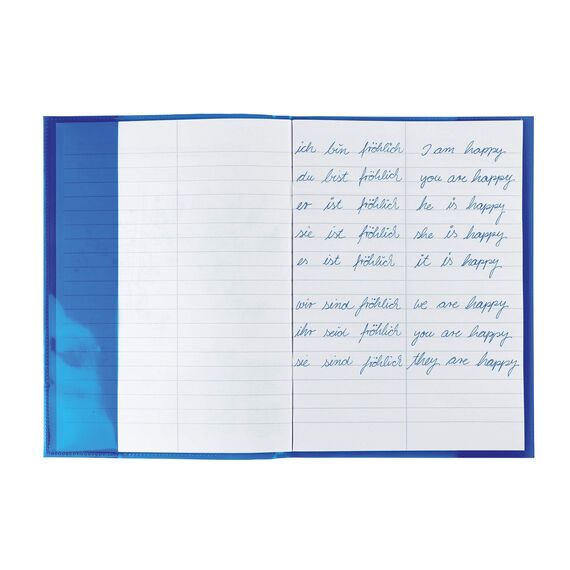 ich bin fröhlich I am happy
du bist fröhlich you are happy
er ist fröhlich he is happy
sie ist fröhlich she is happy
es ist fröhlich it is happy
wir sind fröhlich we are happy
ihr seid fröhlich you are happy
sie sind fröhlich they are happy